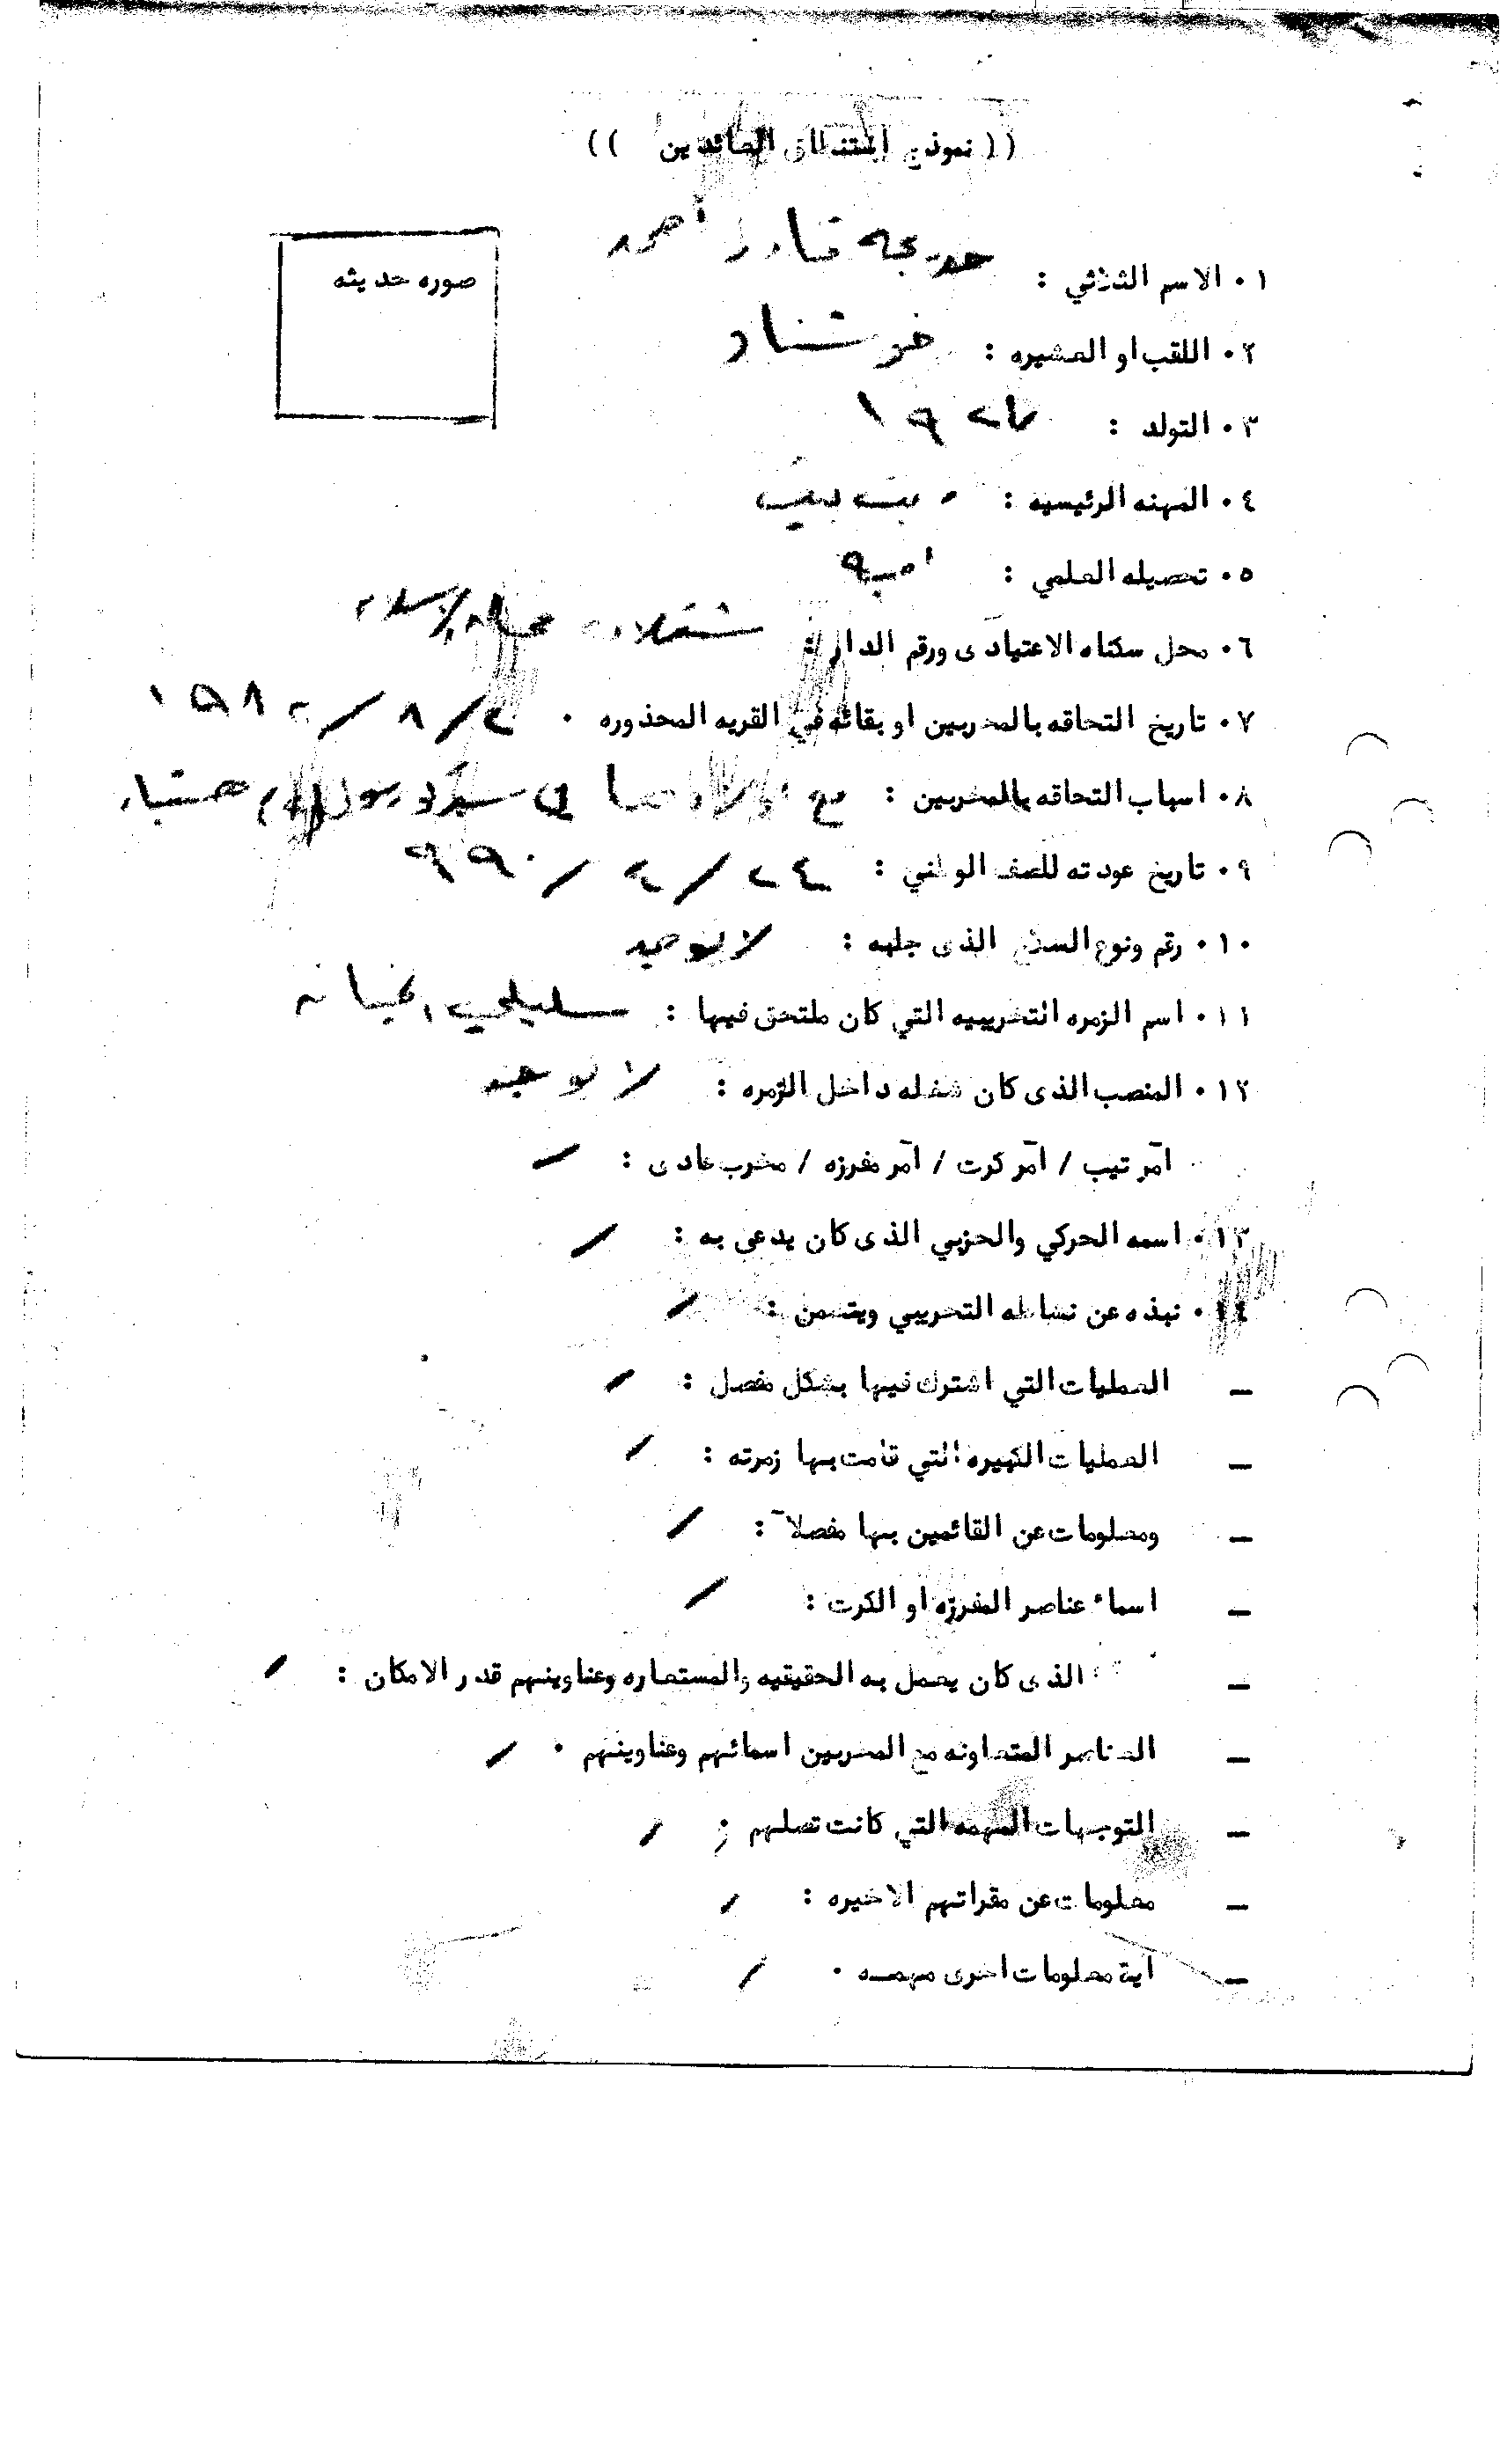 (( نموذج استنطاق العائدين ))
صوره حديثه
٠١ الاسم الثلاثي : خديجه قادر أحمد
٠٢ اللقب او العشيره : خوشناو
٠٣ التولد : ١٩٢٧
٠٤ المهنه الرئيسيه : ربت بيت
٠٥ تحصيله العلمي : امية
٠٦ محل سكناه الاعتيادى ورقم الدار : شقلاوه محله
٠٧ تاريخ التحاقه بالمخربين او بقائه في القريه المحذوره ٠ ٢ / ٨ / ١٩٨٢
٠٨ اسباب التحاقه بالمخربين : مع اولادها في
٠٩ تاريخ عودته للصف الوطني : ٢٤ / ٢ / ٩٩٠
٠١٠ رقم ونوع السلاح الذى جلبه : لا يوجد
٠١١ اسم الزمره التخريبيه التي كان ملتحق فيها : سليلي الخيانه
٠١٢ المنصب الذى كان شغله داخل الزمره : لا يوجد
آمر تيب / آمر كرت / آمر مفرزه / مخرب عادى : /
٠١٣ اسمه الحركي والحزبي الذى كان يدعى به : /
٠١٤ نبذه عن نشاطه التخريبي ويتضمن : /
_ العمليات التي اشترك فيها بشكل مفصل : /
_ العمليات الكبيره التي قامت بها زمرته : /
_ ومعلومات عن القائمين بها مفصلاً : /
_ اسماء عناصر المفرزه او الكرت : /
_ الذى كان يعمل به الحقيقيه والمستعاره وعناوينهم قدر الامكان : /
_ العناصر المتعاونه مع المخربين اسمائهم وعناوينهم ٠ /
_ التوجيهات المهمه التي كانت تصلهم : /
_ معلومات عن مقراتهم الاخيره : /
_ اية معلومات اخرى مهمه ٠ /